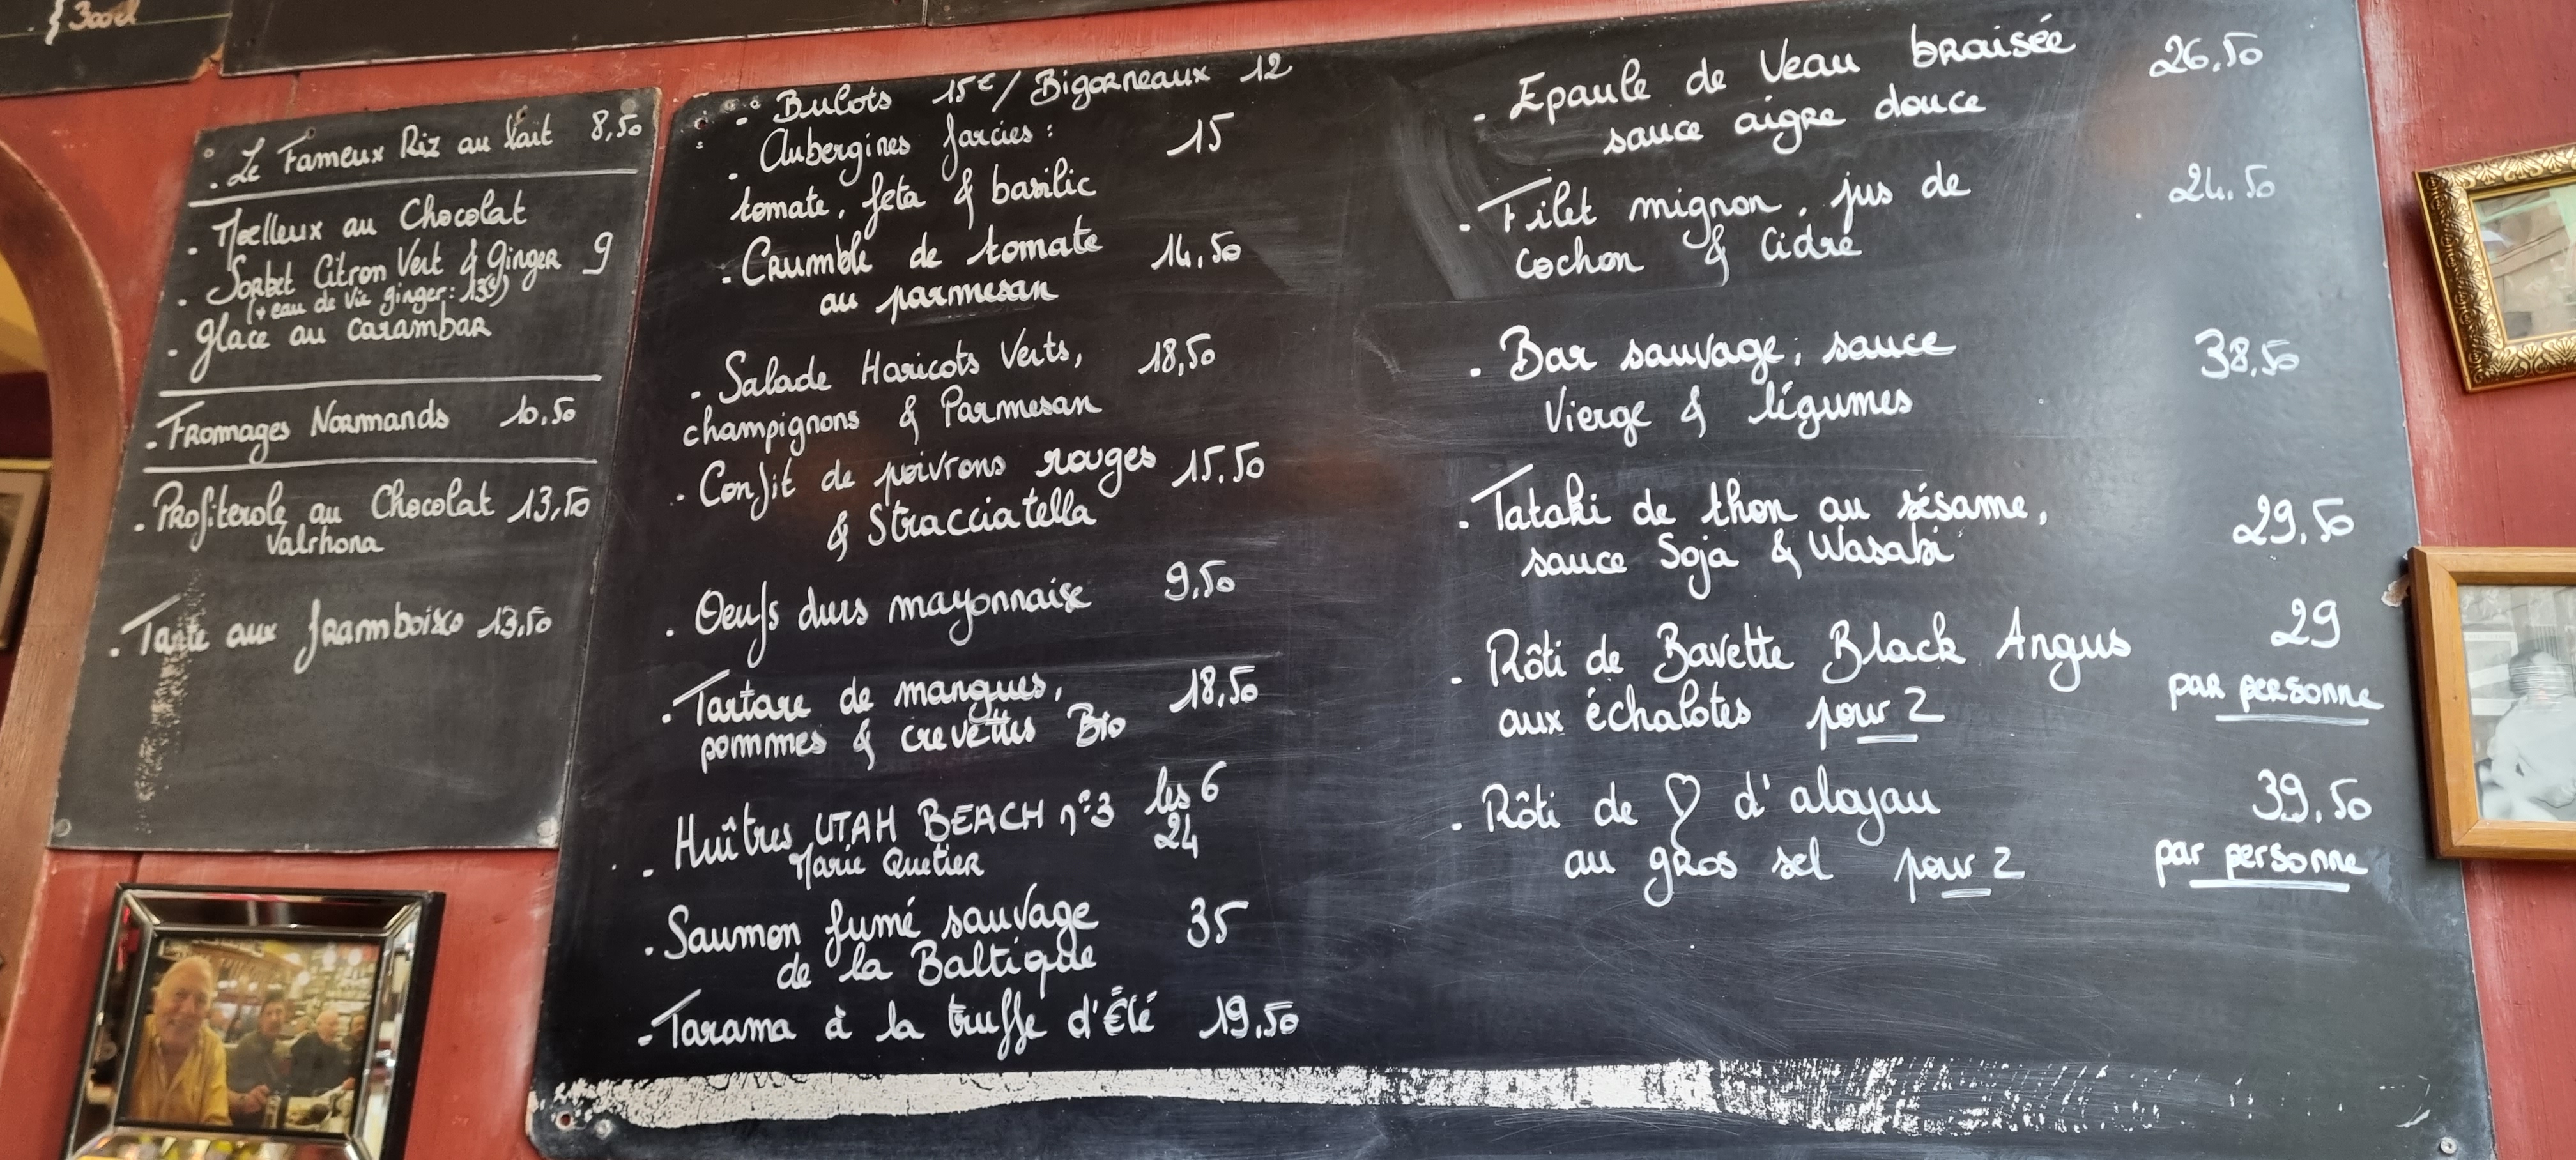 . Le Fameux Riz au lait 8,50
. Moelleux au Chocolat
. Sorbet Citron Vert & Ginger 9
(+ eau de vie ginger : 13€)
. Glace au carambar
. Fromages Normands 10.50
. Profiterole au Chocolat 13,50
Valrhona
. Tarte aux framboises 13,50
. Bulots 15€ / Bigorneaux 12
. Aubergines farcies : 15
tomate, feta & basilic
. Crumble de tomate 14,50
au parmesan
. Salade Haricots Verts, 18,50
champignons & Parmesan
. Confit de poivrons rouges 15.50
& Stracciatella
. Oeufs durs mayonnaise 9,50
. Tartare de mangues, 18,50
pommes & crevettes Bio
. Huîtres UTAH BEACH n°3 les 6
Marie Quetier 24
. Saumon fumé sauvage 35
de la Baltique
- Tarama à la truffe d'Été 19,50
. Epaule de Veau braisée 26,50
sauce aigre douce
. Filet mignon, jus de 24.50
Cochon & Cidre
. Bar sauvage, sauce 38,50
Vierge & légumes
. Tataki de thon au sésame, 29,50
sauce Soja & Wasabi
. Rôti de Bavette Black Angus 29
aux échalotes pour 2 par personne
. Rôti de ♡ d'aloyau 39,50
au gros sel pour 2 par personne